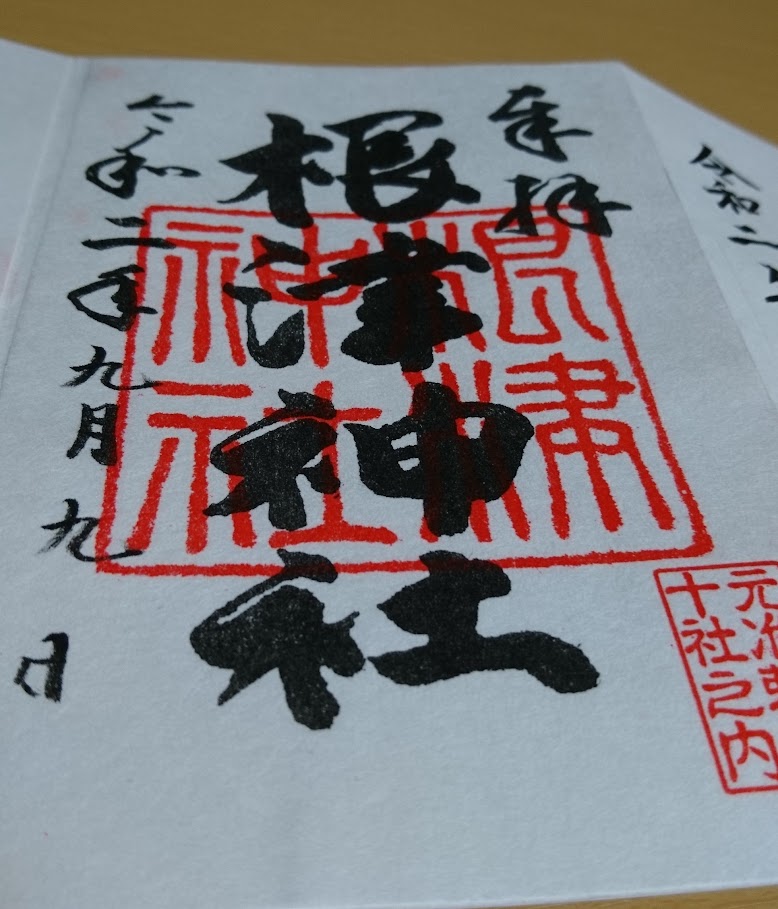 令和二
奉拝
根津神社
令和二年九月九日
根津
神社
元准
十社之内